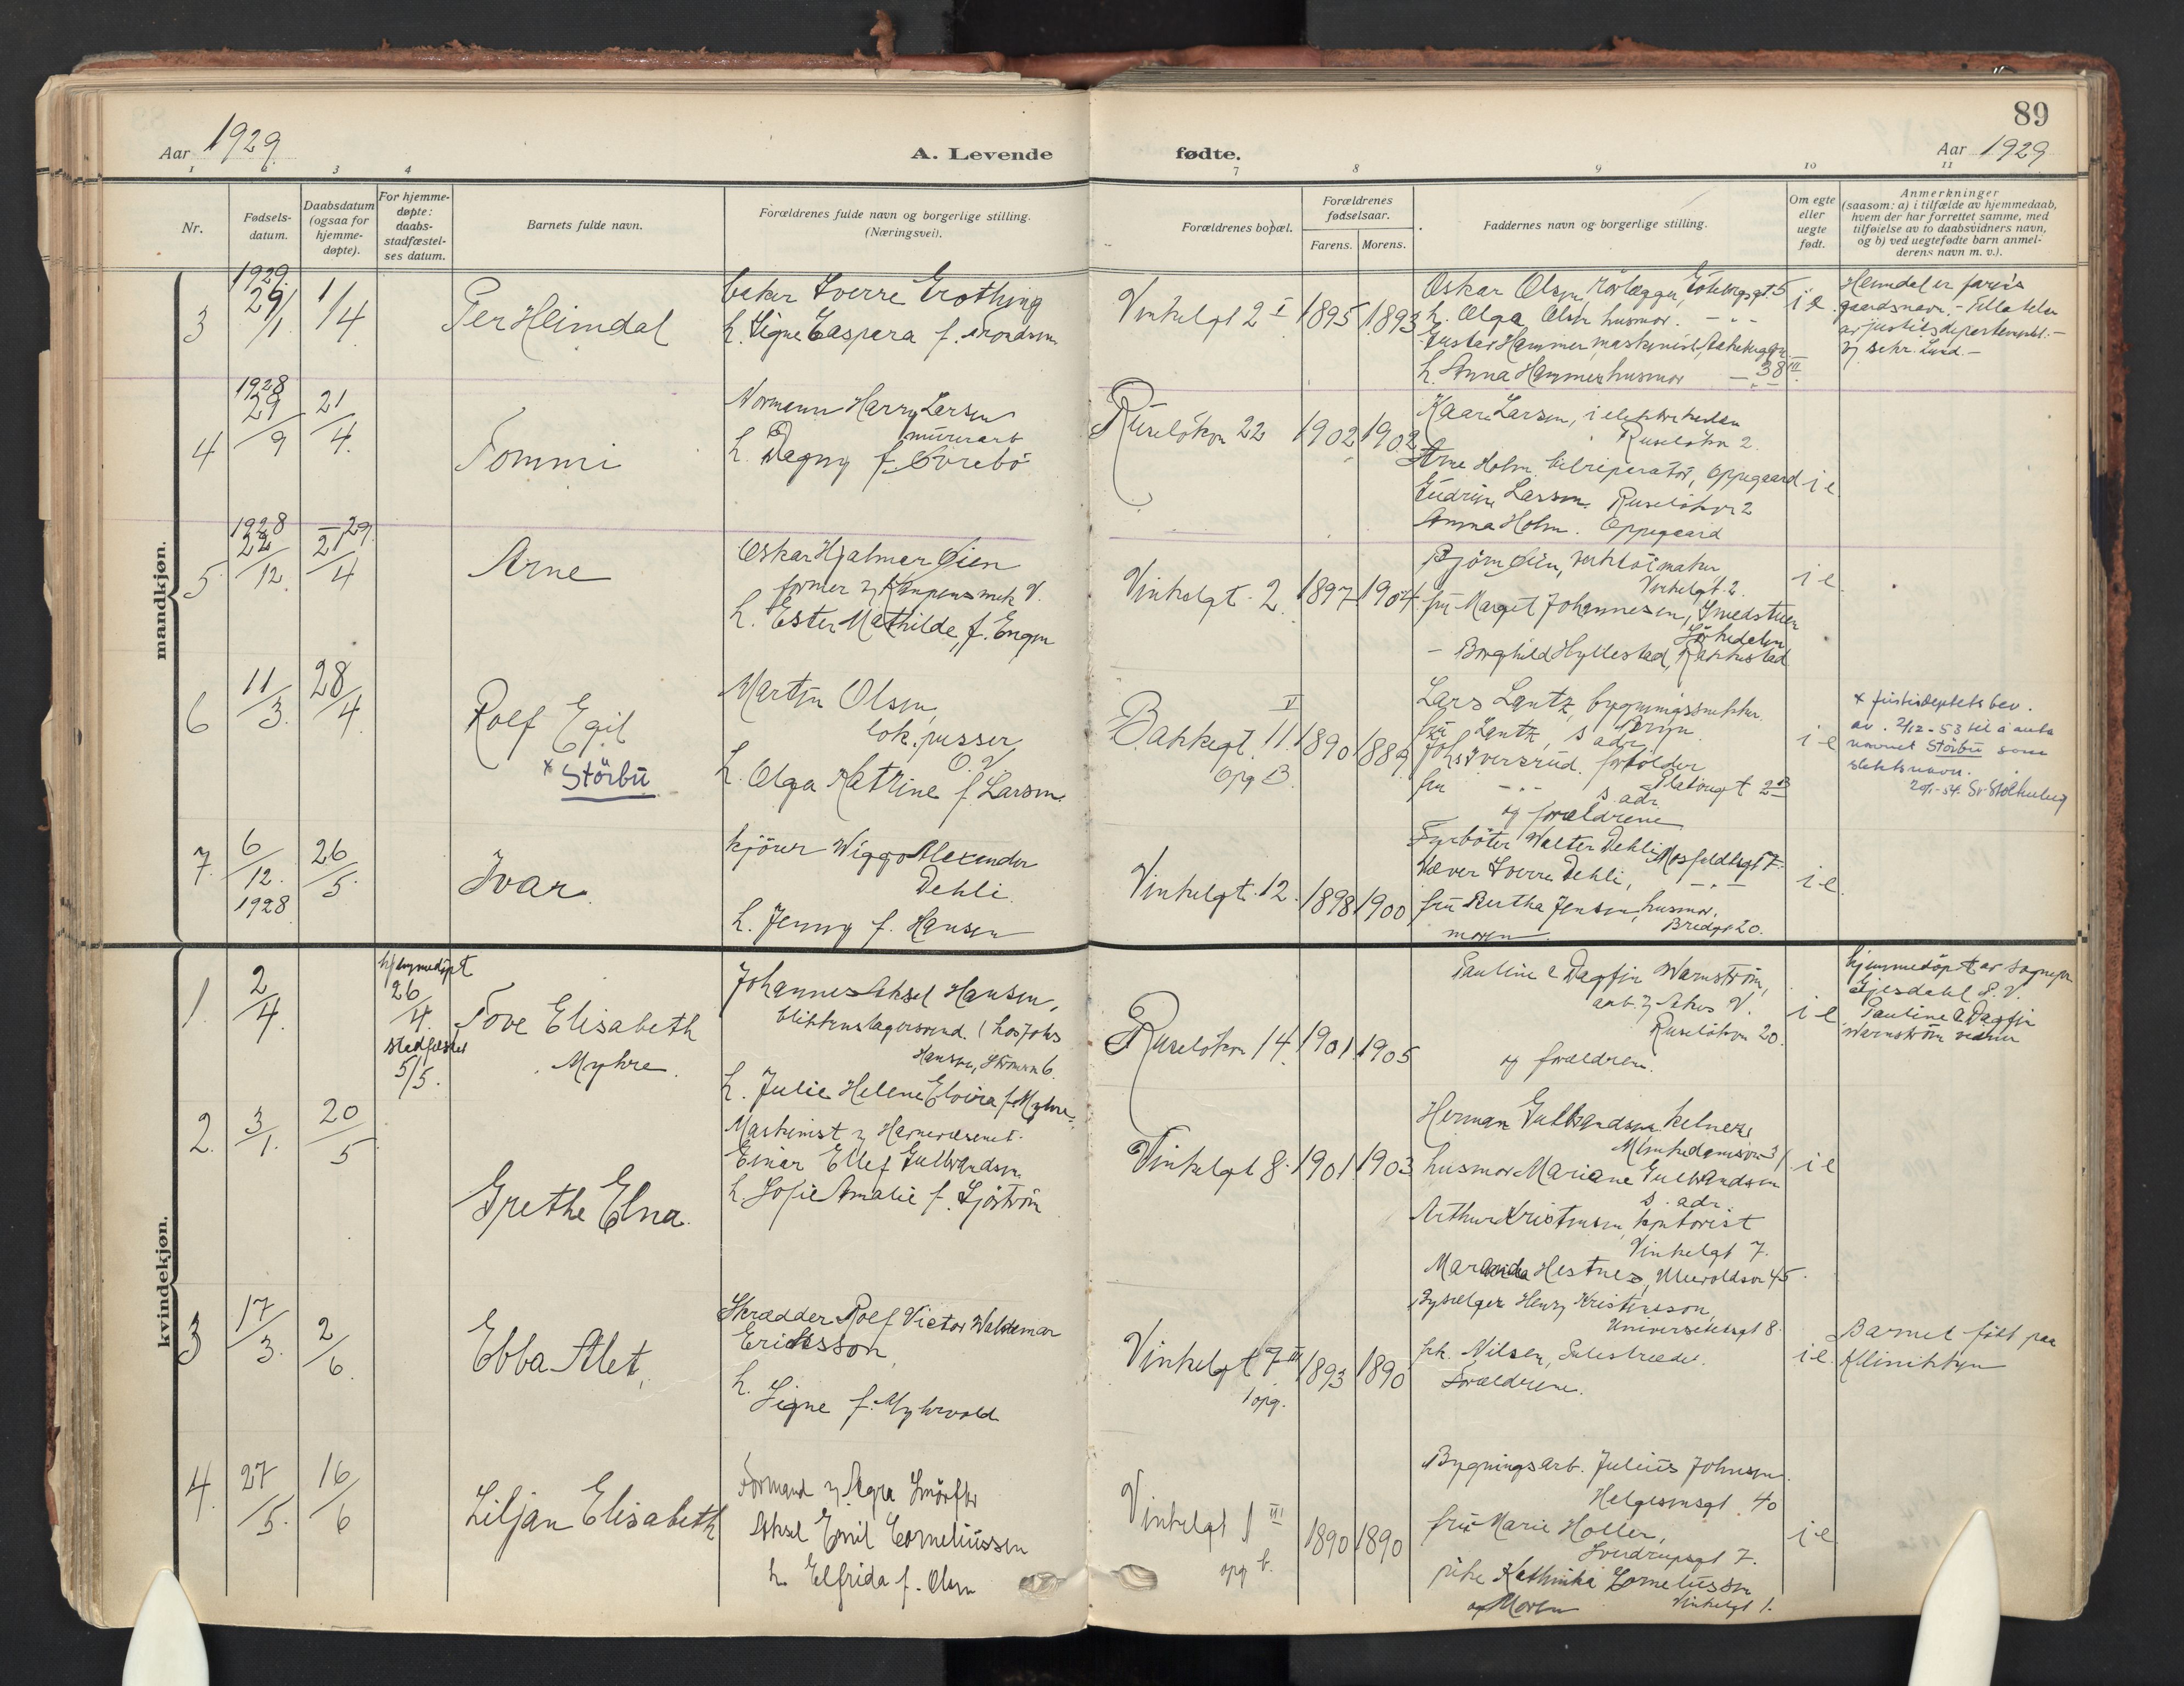 89
Aar 1929
A. Levende
fødte.
Aar 1929
1 3 4
7 8 9 10 11
Nr.
Fødsels-
datum.
Daabsdatum
(ogsaa for
hjemme-
døpte).
For hjemme-
døpte:
daabs-
stadfæstel-
ses datum.
Barnets fulde navn.
Forældrenes fulde navn og borgerlige stilling.
(Næringsvei).
Forældrenes bopæl.
Forældrenes
fødselsaar.
Farens. Morens.
Faddernes navn og borgerlige stilling.
Om egte
eller
uegte
født.
Anmerkninger
(saasom: a) i tilfælde av hjemmedaab,
hvem der har forrettet samme, med
tilføielse av to daabsvidners navn,
og b) ved uegtefødte barn anmel-
derens navn m. v.).
mandkjøn.
3
1929
29/1
1/4
Per Heimdal
Sverre
h. Signe Caspara f. Nordsen
Vinkelgt 2 I
1895 1893
Oskar Olsen, Rörlægger, Göteborggt. 5
h. Olga Olsen husmor. - " -
Gustav Hammer, maskinist,
h. Anna Hammer husmor - " - 38 III
i e.
Heimdal er farens
gaardsnavn. - Tillatelse
av justisdepartementet. -
4
1928
29/9
21/4.
Tommi
Normann Harry Larsen
murerarb
h. Dagny f. Övrebö
Ruselökvn 22
1902 1902
Kaare Larsen, i elektrisiteten
Ruselökv 2.
Arne Holm, bilreparatör, Oppegaard
Gudrun Larsen Ruselökvn 2
Anna Holm. Oppegaard
i e.
5
1928
22/12.
-29
21/4
Arne
Oskar Hjalmar Öien
former v Kampens mek V.
h. Ester Mathilde, f. Engen
Vinkelgt. 2
1897 1904
Björn Öien, verktöimaker
Vinkelgt. 2.
fru Margit Johannesen, Smedstuen
Sörkedalen
- Borghild Hyllestad, Rakkestad
i e
6
11/3.
28/4
Rolf Egil
x Störbu
Martin Olsen,
lok. pusser
Ö. V.
h. Olga Katrine f. Larsen.
Bakkegt. 11. V
opg B.
1890 1889
Lars Lantz, bygningssnekker.
Bryn
fru Lantz, s adr.
Johs Iversrud. forvolder
Platougt 2 B
fru - " - s. adr.
og forældrene
i e
x Justisdeptets bev.
av. 2/12-53 til å anta
navnet Störbu som
slektsnavn.
20/1-54. Sv. Stoltenberg
7.
6/12.
1928
26/5.
Ivar.
kjörer Wiggo Alexander
Dehli.
h. Jenny f. Hansen
Vinkelgt. 12.
1898 1900
Fyrböter Walter Dehli, Mosfeldtsgt 7.
Wæver Sverre Dehli, - " -
fru Bertha Jensen, husmor.
Bredgt 20.
moren.
i e.
kvindekjøn.
1.
2/4.
hjemmedöpt
26/4.
stadfæstet
5/5.
Tove Elisabeth
Myhre.
Johannes Aksel Hansen,
blikkenslagersvend. (hos Johs
Hansen, Strömsv 6.
h. Julie Helene Elvira f. Myhre.
Ruselökvn 14.
1901 1905
Pauline & Dagfin Warnström,
arb. v Akers V.
Ruselökvn 20.
og forældrene.
i e
hjemmedöpt av sognepr
Gjesdahl S. V.
Pauline & Dagfin
Warnström vidner
2.
3/1.
20/5
Grethe Elna.
Maskinist v Havnevæsenet.
Einar Ellef Gulbrandsen
h. Sofie Amalie f. Sjöström
Vinkelgt 8.
1901. 1903
Herman Gulbrandsen kelner,
Munkedamsvn 31.
husmor Mariane Gulbrandsen
s. adr.
Arthur Kristensen, kontorist
Vinkelgt 7.
Maranda Hestnes, Ullevoldsvn 45.
i e
3
17/3.
2/6.
Ebba Alet,
Skrædder Rolf Victor Waldemar
Ericksson,
h. Signe f. Myhrvold
Vinkelgt 7 III
1 opg.
1893 1890
Bysælger Henry Kristensson,
Universitetsgt 8.
frk. Nilsen,
Forældrene.
i e.
Barnet födt paa
Klinikken
4.
27/5.
16/6
Liljan Elisabeth
Formand v Agra Smörfbr
Aksel Emil Corneliussen
h. Elfrida f. Olsen
Vinkelgt 1 III
opg b.
1890 1890
Bygningsarb. Julius Johnsen.
Helgesensgt. 40
fru Marie Holler,
Sverdrupsgt 7.
pike Kathinka Corneliussen
Vinkelgt 1.
og Moren
i e